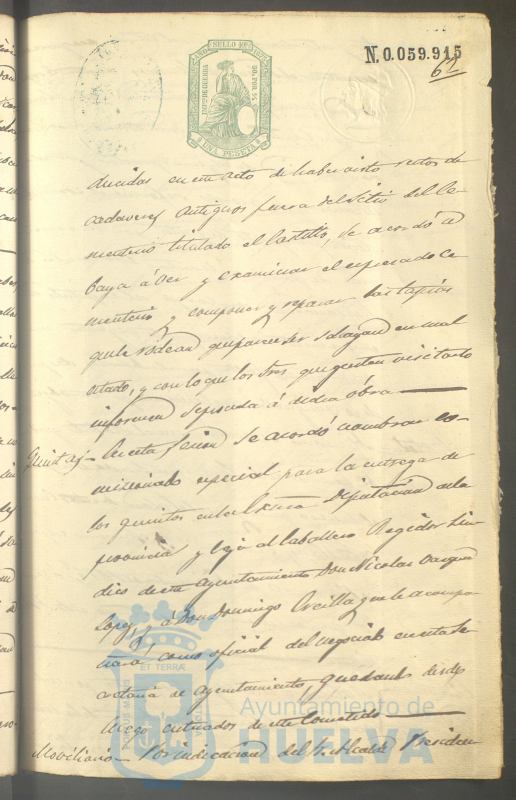 AÑO SELLO 10º 187
IMPTO DE GUERRA
50 POR %
UNA PESETA
N. 0.059.915
62
ducidas en este acto de haber visto restos de
cadaveres antiguos fuera del sitio del Ce-
menterio titulado el Castillo, se acordó
vaya á ver y examinar el espresado Ce
menterio y componer y reparar las tapias
que le rodean que parece ser se hayan en mal
estado, y con lo que los Sres que gusten visitarlo
informen se proceda á dicha obra
Quintas - En esta sesion se acordó nombrar co-
misionado especial para la entrega de
los quintos en la Excma Diputacion de la
provincia y lo és al Caballero Regidor Sin
dico de este Ayuntamiento Don Nicolas Vazquez
Lopez, y á Don Domingo Orcilla que le acompa
ñará, como oficial del negociado en esta Se
cretaria de Ayuntamiento, quedando desde
luego enterados de este cometido
Moviliario - Por indicacion del Sr Alcalde Presiden
ET TERRA
Ayuntamiento de
HUELVA